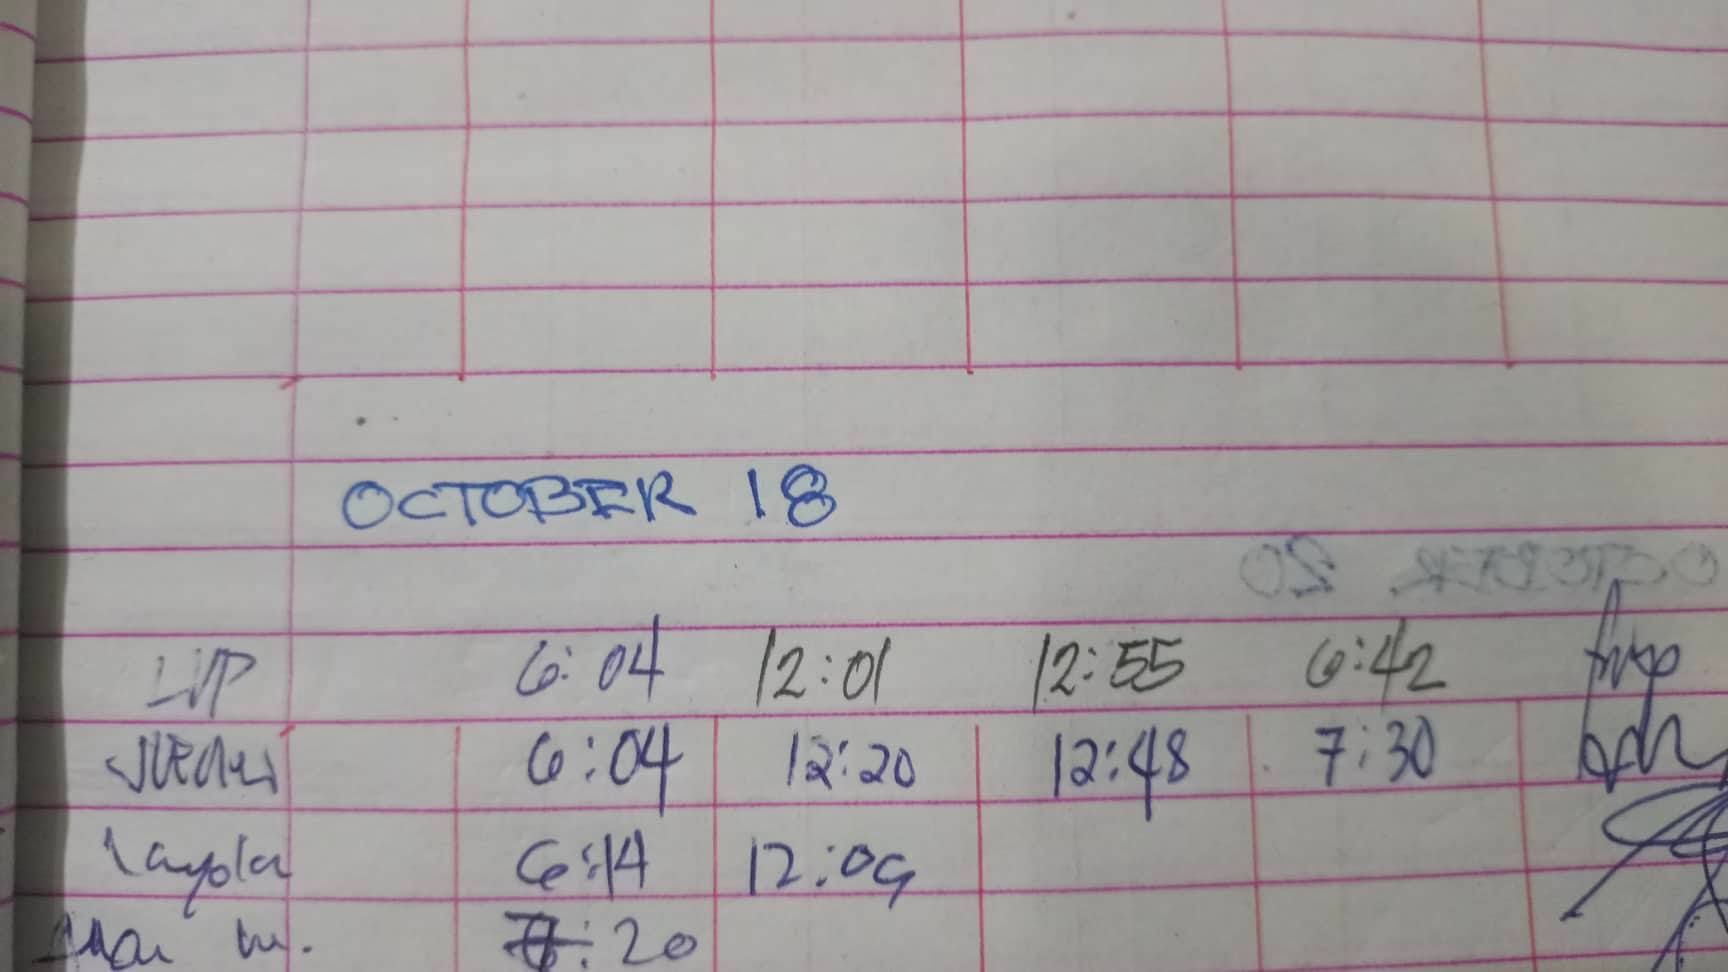 OCTOBER 18
LVP 6:04 12:01 12:55 6:42
6:04 12:20 12:48 7:30
Layola 6:14 12:09
:20